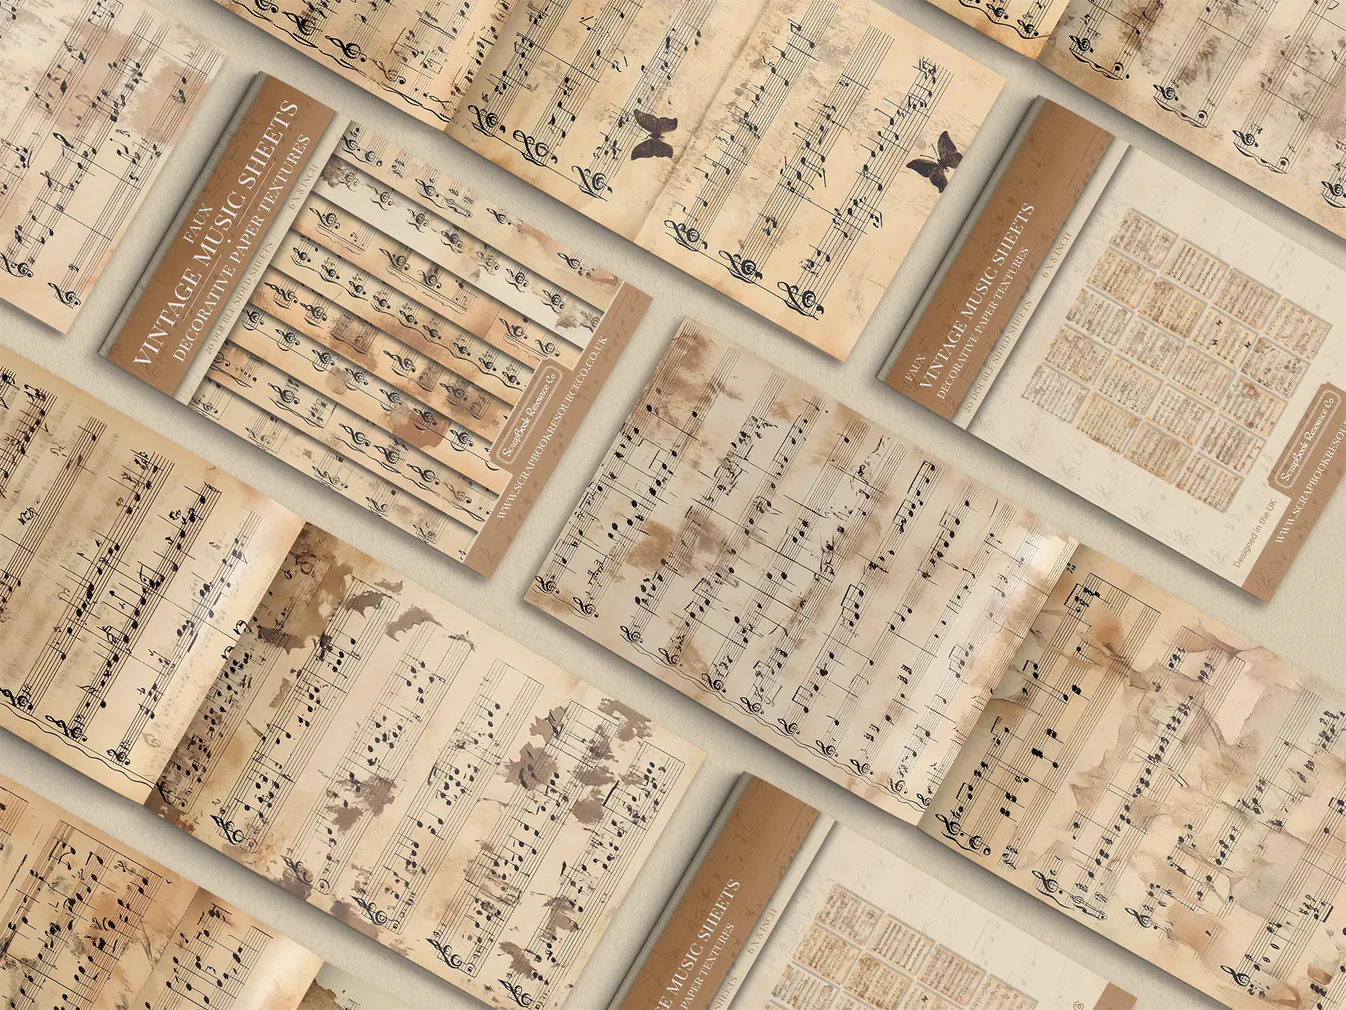 FAUX
VINTAGE MUSIC SHEETS
DECORATIVE PAPER TEXTURES
20 DOUBLE-SIDED SHEETS
6 X 8 INCH
ScrapBook Resource Co
WWW.SCRAPBOOKRESOURCECO.CO.UK
FAUX
VINTAGE MUSIC SHEETS
DECORATIVE PAPER TEXTURES
20 DOUBLE-SIDED SHEETS
6 X 8 INCH
ScrapBook Resource Co
Designed in the UK
WWW.SCRAPBOOKRESOU
E MUSIC SHEETS
PAPER TEXTURES
6 X 8 INCH